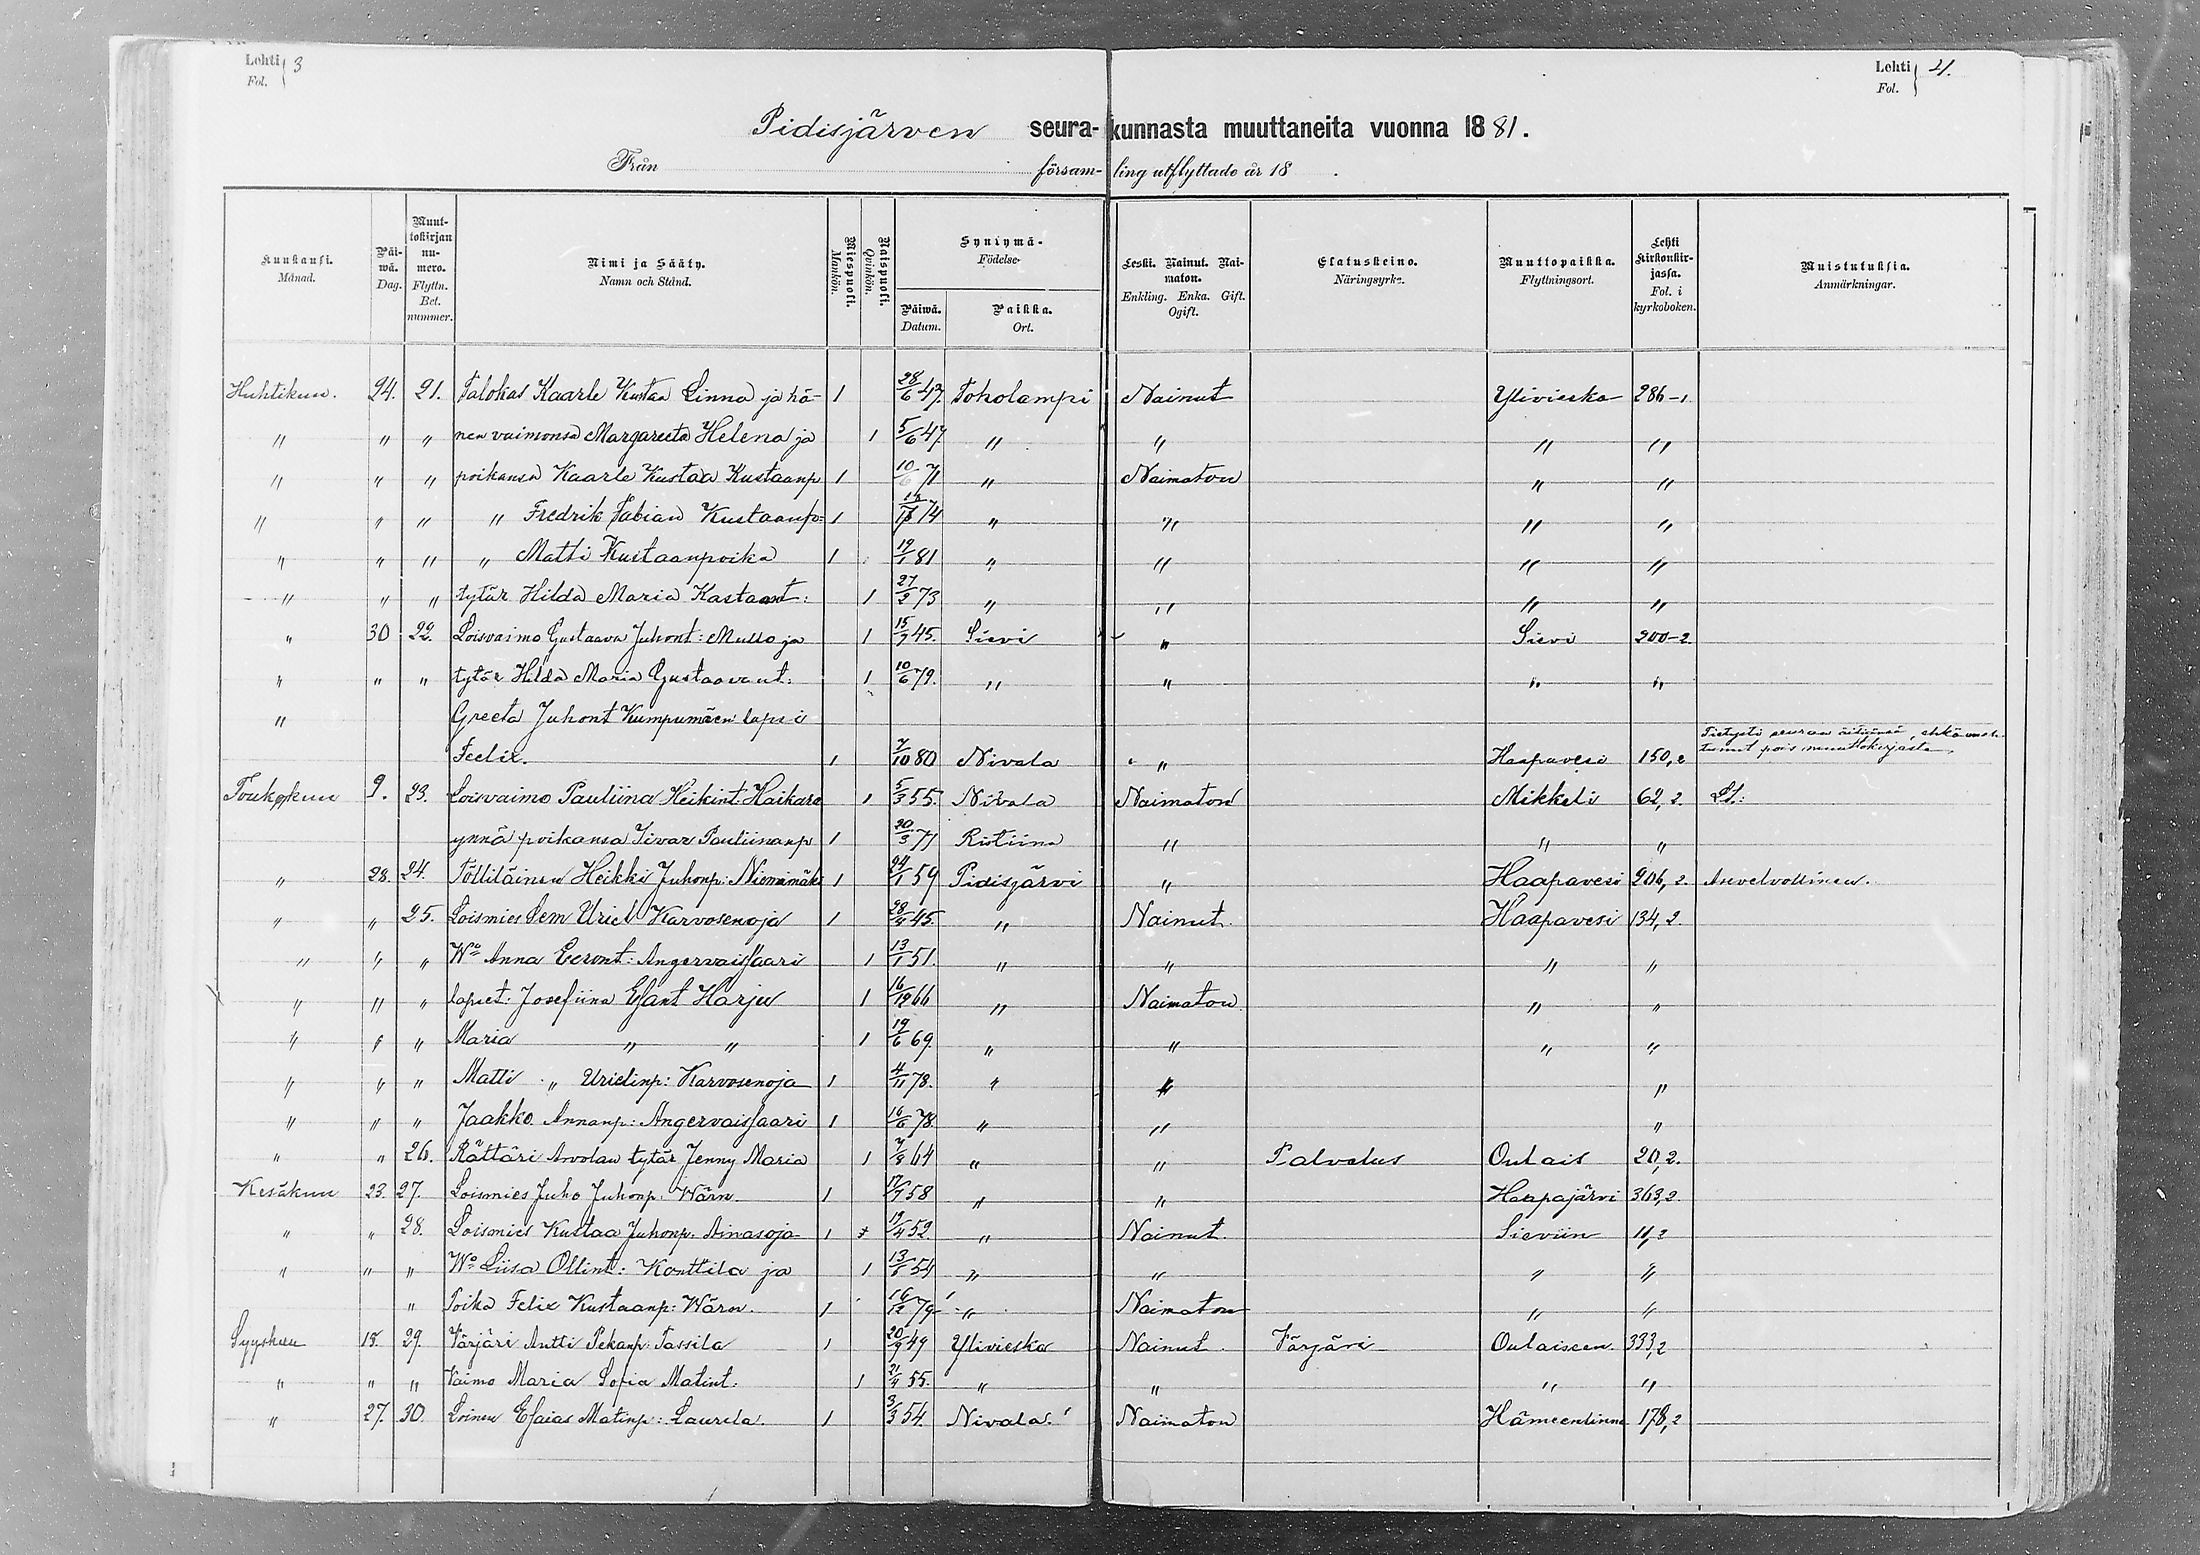 Lehti } 3
Fol.
Lehti } 4.
Fol.
Pidisjärven seura-kunnasta muuttaneita vuonna 1881.
Från församling utflyttade år 18 .
Kuukausi. Månad. | Päiwä. Dag. | Muuttokirjan numero. Flyttn. Bet. nummer. | Nimi ja Sääty. Namn och Stånd. | Miespuoli. Mankön. | Naispuoli. Qvinkön. | Syntymä- Födelse- Päiwä. Datum. | Paikka. Ort. | Leski. Nainut. Naimaton. Enkling. Enka. Gift. Ogift. | Elatuskeino. Näringsyrke. | Muuttopaikka. Flyttningsort. | Lehti Kirkonkirjassa. Fol. i kyrkoboken. | Muistutuksia. Anmärkningar.
Huhtikuu. 24. 21. Talokas Kaarle Kustaa Linna ja hä- 1 28/6 47 Toholampi Nainut Ylivieska 286-1
" " " nen vaimonsa Margareeta Helena ja 1 5/6 47 " " " "
" " " poikansa Kaarle Kustaa Kustaanp 1 10/6 71 " Naimaton " "
" " " " Fredrik Fabian Kustaanpo= 1 74 " " " "
" " " " Matti Kustaanpoika 1 19/1 81 " " " "
" " " tytär Hilda Maria Kastaant: 1 27/2 73 " " " "
" 30 22. Loisvaimo Gustaava Juhont: Mullo ja 1 15/7 45. Sievi " Sievi 200-2.
" " " tytär Hilda Maria Gustaavant: 1 10/6 79. " " " "
" Greeta Juhont Kumpumäen lapsi
Feelix. 1 7/10 80 Nivala " Haapavesi 150,2 Tietysti seuraa äitiänsä,
pois muuttokirjasta.
Toukokuu 9. 23. Loisvaimo Pauliina Heikint: Haikara 1 5/3 55. Nivala Naimaton Mikkeli 62,2. Lt:
ynnä poikansa Iivar Pauliinanp 1 20/3 71 Ristiina " " "
" 28. 24. Töllïläinen Heikki Juhonp: Niemimäki 1 24/1 59 Pidisjärvi " Haapavesi 206,2. Asevelvollinen.
" " 25. Loismies Sem Uriel Karvosenoja 1 45 " Nainut. Haapavesi 134,2.
" " " Wo Anna Eeront: Angervaissaari 1 13/1 51. " " " "
" " " lapset: Josefiina Esant Harju 1 16/12 66 " Naimaton " "
" " " Maria " " 1 19/6 69. " " " "
" " " Matti " Urielinp: Karvosenoja 1 4/11 78. " " "
" " " Jaakko Annanp: Angervaissaari 1 16/6 78. " " "
" " 26. Rättäri Arvolan tytär Jenny Maria 1 7/8 64 " " Palvelus Oulais 20,2.
Kesäkuu 23. 27. Loismies Juho Juhonp: Wärn 1 17/7 58 " " Haapajärvi 363,2.
" " 28. Loismies Kustaa Juhonp: Ainasoja 1 19/4 52. " Nainut. Sieviin 11,2
" " " Wo Liisa Ollint: Konttila ja 1 13/6 54 " " " "
" Poika Felix Kustaanp: Wärn. 1 16/12 79 " Naimaton " "
Syyskuu 18. 29. Värjäri Antti Pekanp: Tassila 1 20/9 49 Ylivieska Nainut. Värjäri Oulaiseen. 333,2
" " " Vaimo Maria Sofia Matint: 1 21/4 55. " " " "
" 27. 30. Loinen Esaias Matinp: Laurila. 1 3/3 54. Nivala. Naimaton Hämeenlinna 178,2